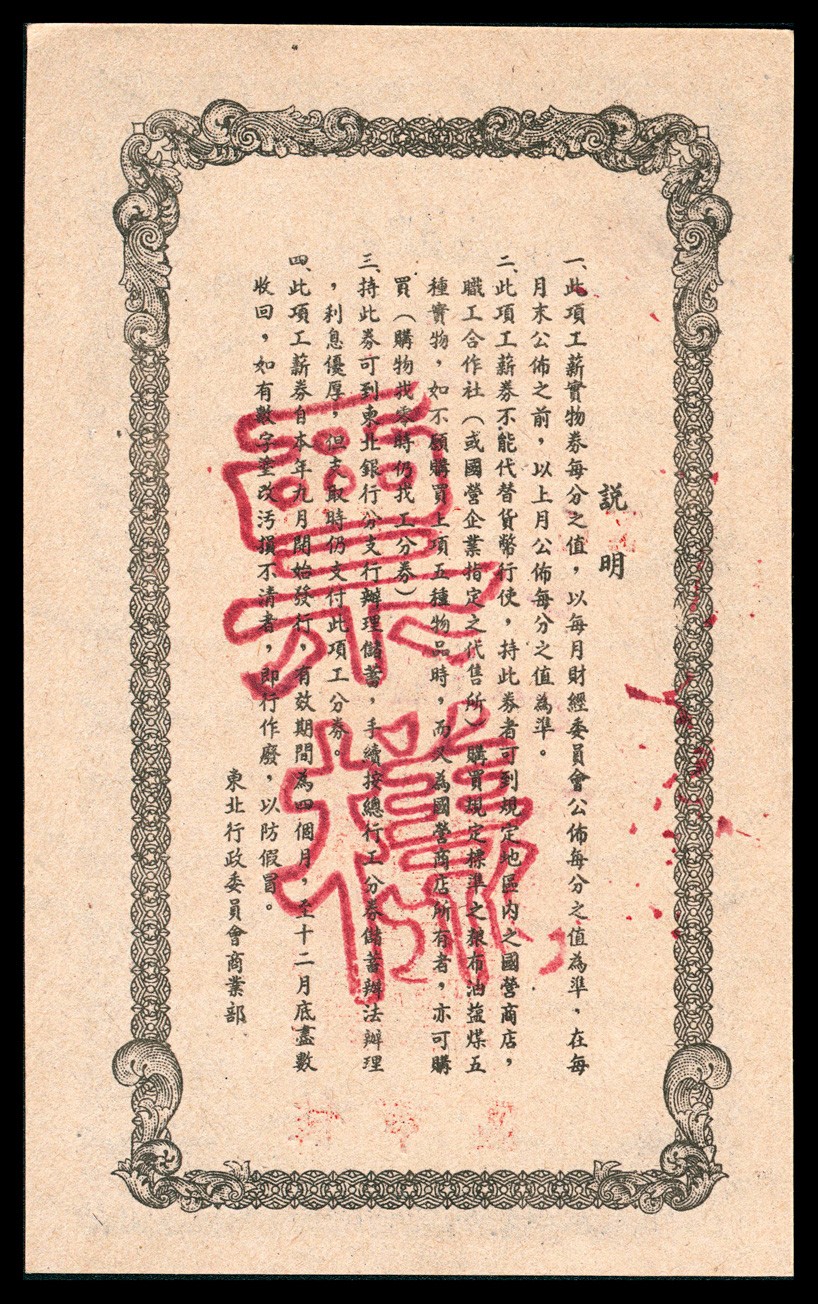 説明
一、此項工薪實物券每分之值，以每月財經委員會公佈每分之值為準，在每
月末公佈之前，以上月公佈每分之值為準。
二、此項工薪券不能代替貨幣行使，持此券者可到規定地區内之國營商店，
職工合作社（或國營企業指定之代售所）購買規定標準之粮布油盐煤五
種實物，如不願購買上項五種物品時，而又為國營商店所有者，亦可購
買（購物找零時仍找工分券）
三、持此券可到東北銀行分支行辦理儲蓄，手續按總行工分券儲蓄辦法辦理
，利息優厚，但支取時仍支付此項工分券。
四、此項工薪券自本年九月開始發行，有效期間為四個月，至十二月底盡數
收回，如有數字塗改汚損不清者，即行作廢，以防假冒。
東北行政委員會商業部
票樣